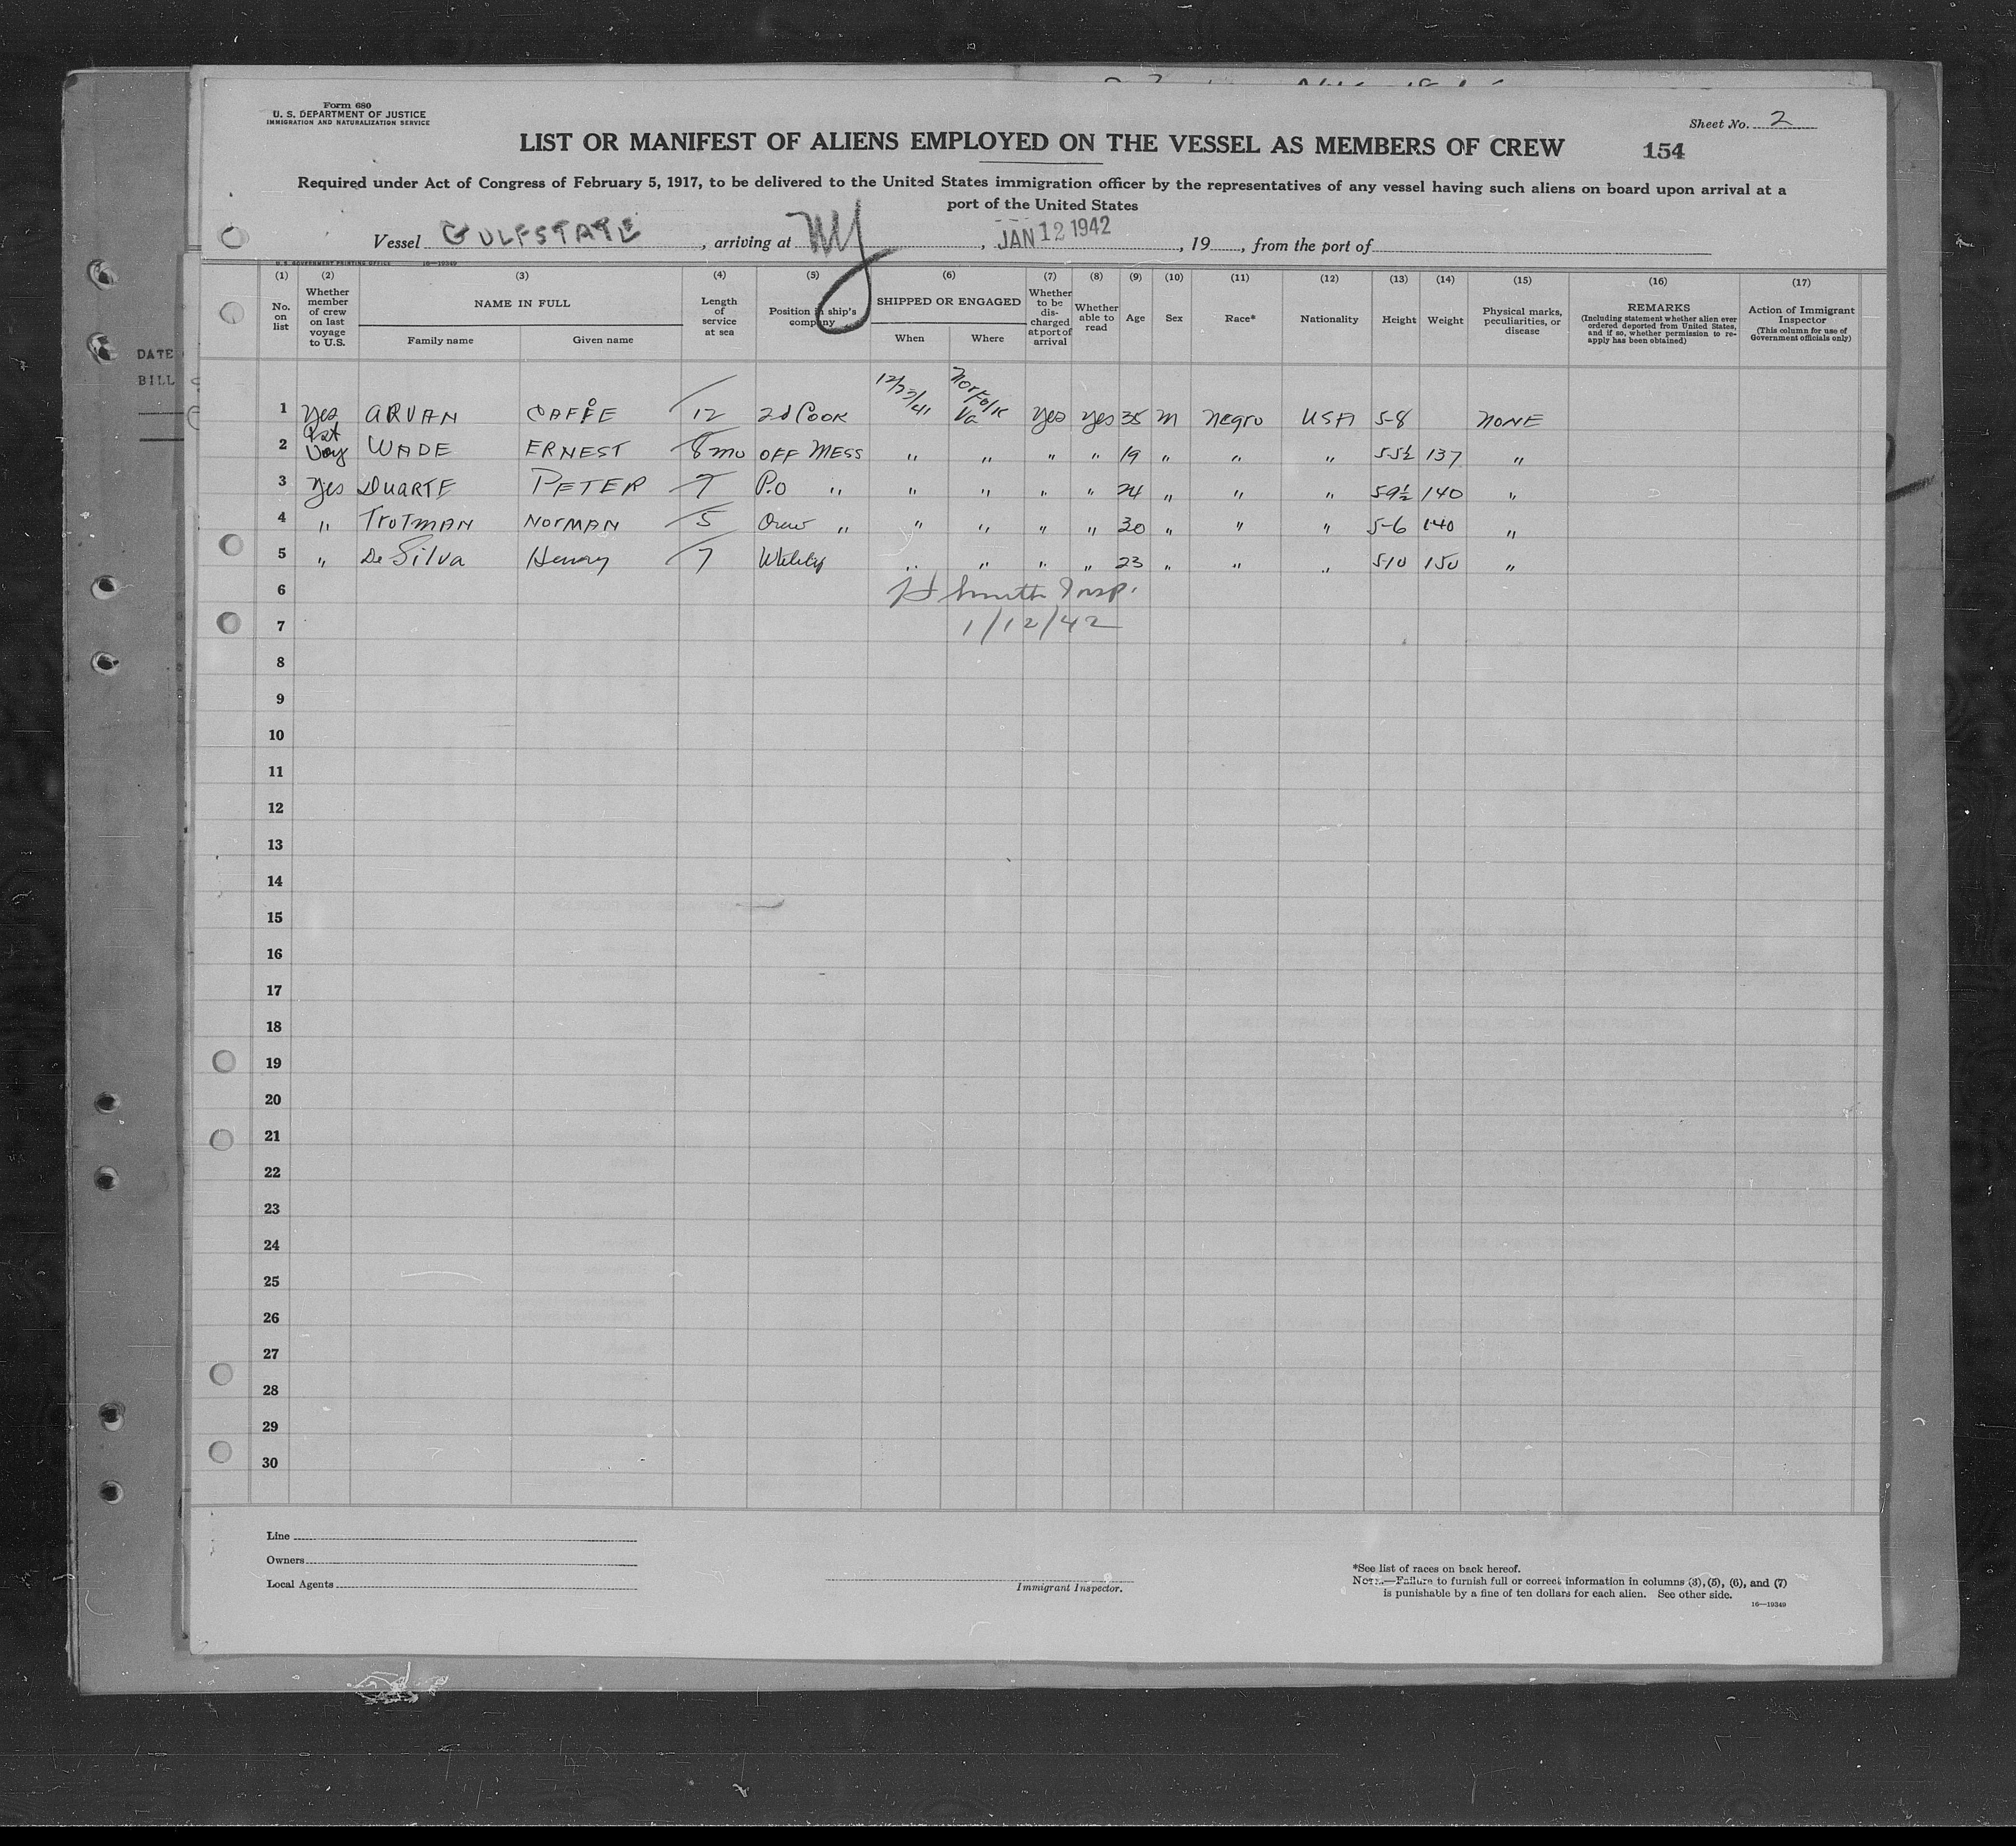 Form 680
U. S. DEPARTMENT OF JUSTICE
IMMIGRATION AND NATURALIZATION SERVICE
Sheet No. 2
LIST OR MANIFEST OF ALIENS EMPLOYED ON THE VESSEL AS MEMBERS OF CREW 154
Required under Act of Congress of February 5, 1917, to be delivered to the United States immigration officer by the representatives of any vessel having such aliens on board upon arrival at a
port of the United States
Vessel GULFSTATE, arriving at NY, JAN 12 1942, 19, from the port of
U. S. GOVERNMENT PRINTING OFFICE 16—19349
(1) (2) (3) (4) (5) (6) (7) (8) (9) (10) (11) (12) (13) (14) (15) (16) (17)
No. on list
Whether member of crew on last voyage to U.S.
NAME IN FULL
Family name Given name
Length of service at sea
Position in ship's company
SHIPPED OR ENGAGED
When Where
Whether to be discharged at port of arrival
Whether able to read
Age
Sex
Race*
Nationality
Height
Weight
Physical marks, peculiarities, or disease
REMARKS
(Including statement whether alien ever ordered deported from United States, and if so, whether permission to re-apply has been obtained)
Action of Immigrant Inspector
(This column for use of Government officials only)
1 Yes ARVAN 12 2d Cook 12/23/41 Norfolk Va Yes Yes 35 M Negro USA 5-8 NONE
2 1st Voy WADE ERNEST 8 mo OFF MESS " " " " 19 " " " 5 5½ 137 "
3 Yes DUARTE PETER 7 P.O " " " " " 24 " " " 5 9½ 140 "
4 " TROTMAN NORMAN 5 Crew " " " " " 30 " " " 5-6 140 "
5 " De Silva Henry 7 Utility " " " " 23 " " " 5-10 150 "
6 H Smith Insp.
7 1/12/42
8
9
10
11
12
13
14
15
16
17
18
19
20
21
22
23
24
25
26
27
28
29
30
Line
Owners
Local Agents
Immigrant Inspector.
*See list of races on back hereof.
NOTE.—Failure to furnish full or correct information in columns (3), (5), (6), and (7)
is punishable by a fine of ten dollars for each alien. See other side.
16—19349
DATE
BILL